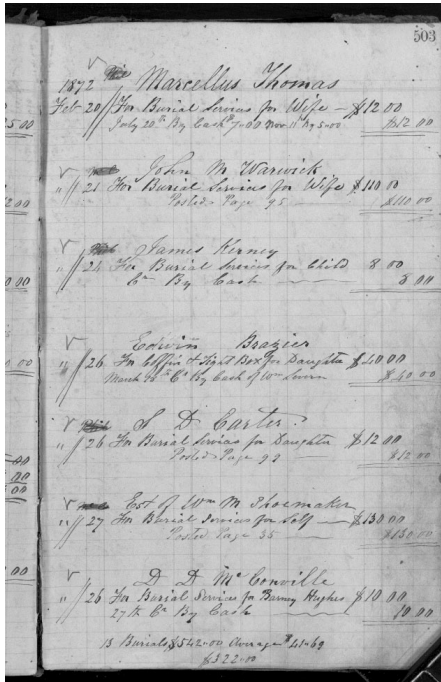 503
1872 Marcellus Thomas
Feb 20 For Burial Services for Wife — $12 00
July 20th By Cash 7=00 Nov 11 By 5=00 $12 00
John M Warwick
" 21 For Burial Services for Wife $110 00
Posted Page 95 $110 00
James Kerney
" 24 For Burial Services for Child 8 00
Cr By Cash 8 00
Edwin Brazier
" 26 For Coffin & Tight Box for Daughter $40 00
March Cr By Cash of Wm $40 00
S D Carter
" 26 For Burial Services for Daughter $12 00
Posted Page 99 $12 00
Est of Wm M Shoemaker
" 27 For Burial Services for Self — $130 00
Posted Page 35 $130 00
D D McConville
" 26 For Burial Services for Barney Hughes $10 00
27th Cr By Cash 10 00
13 Burials $542=00 Average $41=69
$322=00